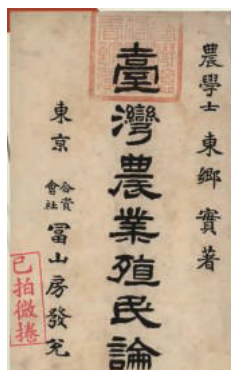 農學士 東鄉實著
臺灣農業殖民論
東京 合資會社 冨山房發兌
已拍微捲